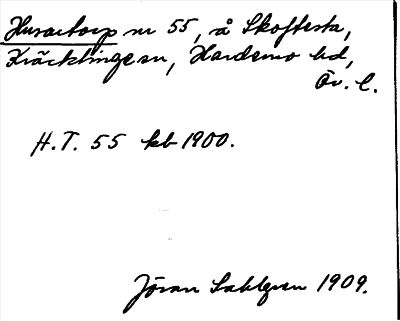 Husartorp nr 55, å Skoftesta,
Kräcklinge sn, Hardemo hd,
Ör. l.
H.T. 55 kb 1900.
Jöran Sahlgren 1909.